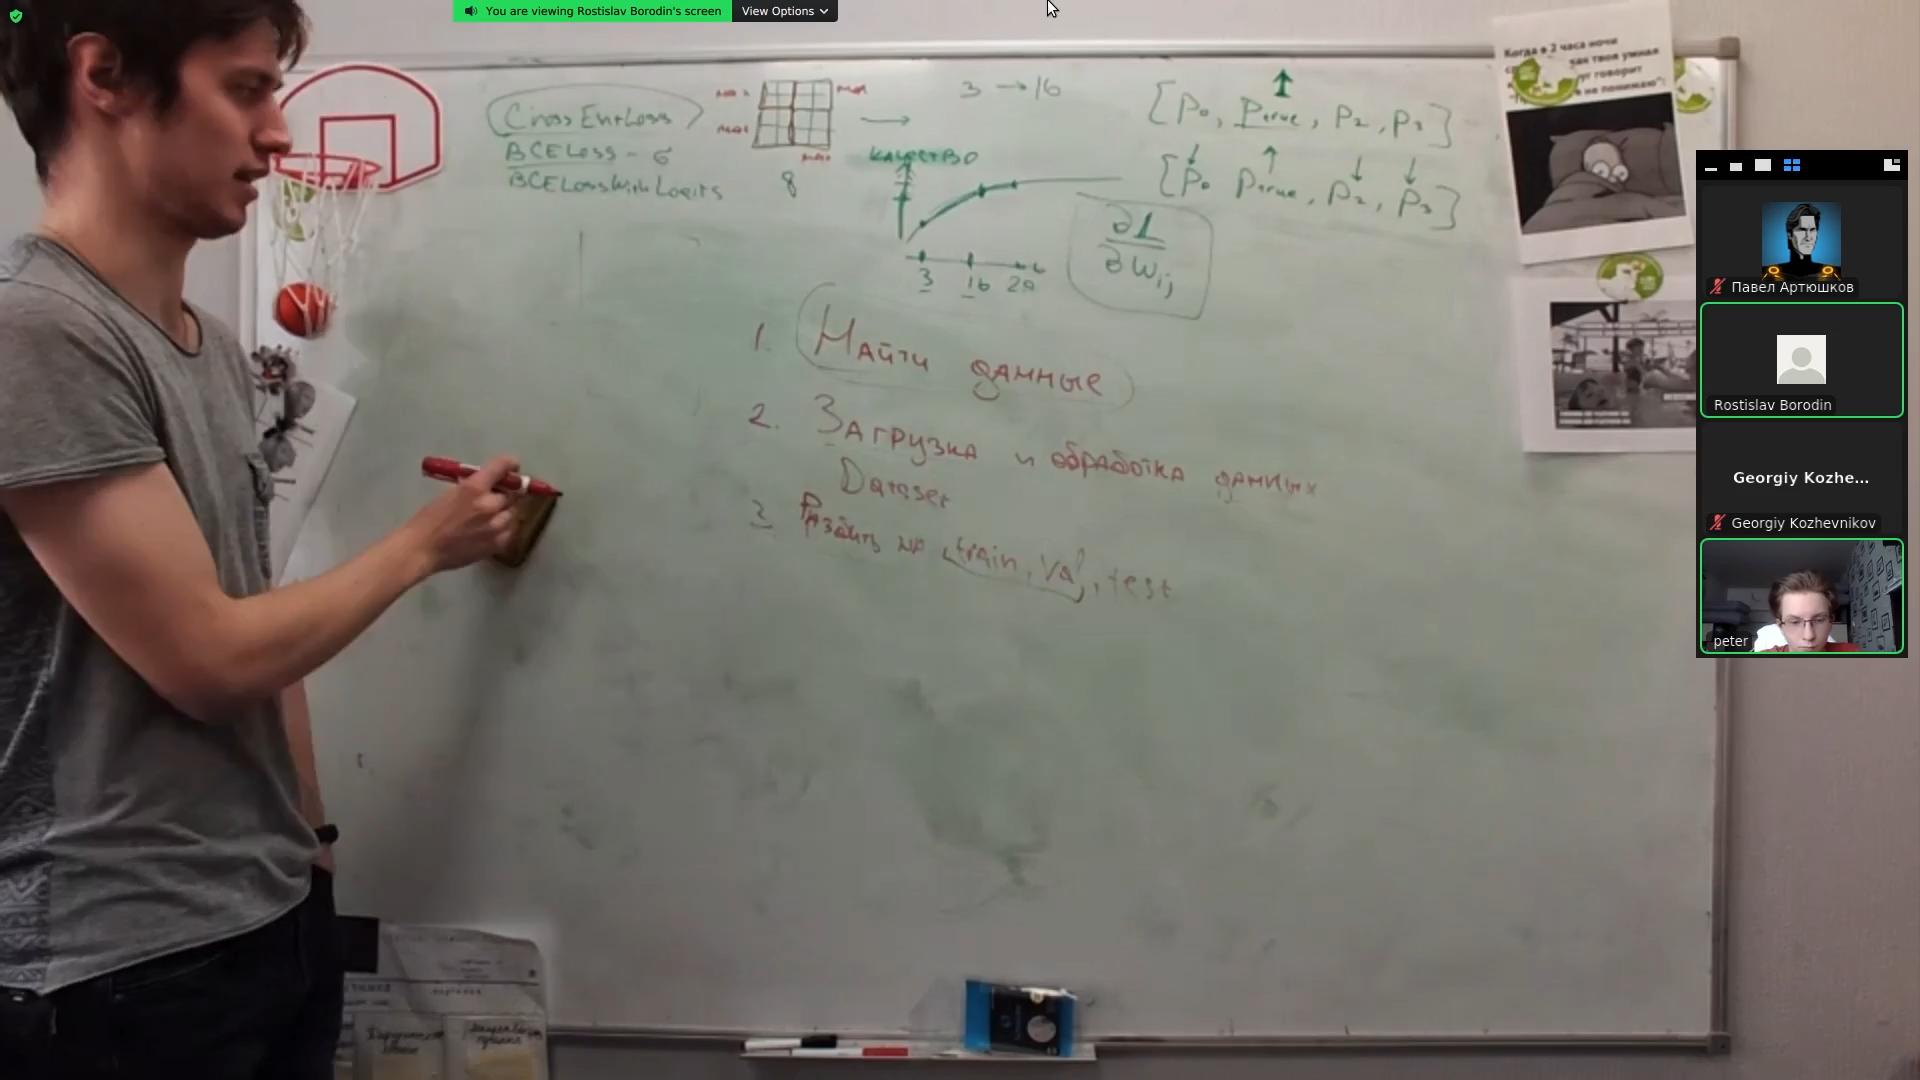 You are viewing Rostislav Borodin's screen
View Options
CrossEntLoss
BCELoss - σ
BCELossWithLogits
max
max
8
3 → 16
качество
3 16 20
[P₀, Ptrue, P₂, P₃]
[P₀ Ptrue, P₂, P₃]
∂L
∂Wij
1. Найти данные
2. Загрузка и обработка данных
Dataset
3 Разбить на train, val, test
Когда в 2 часа ночи
как твоя умная
говорит
не понимаю":
Павел Артюшков
Rostislav Borodin
Georgiy Kozhe...
Georgiy Kozhevnikov
peter